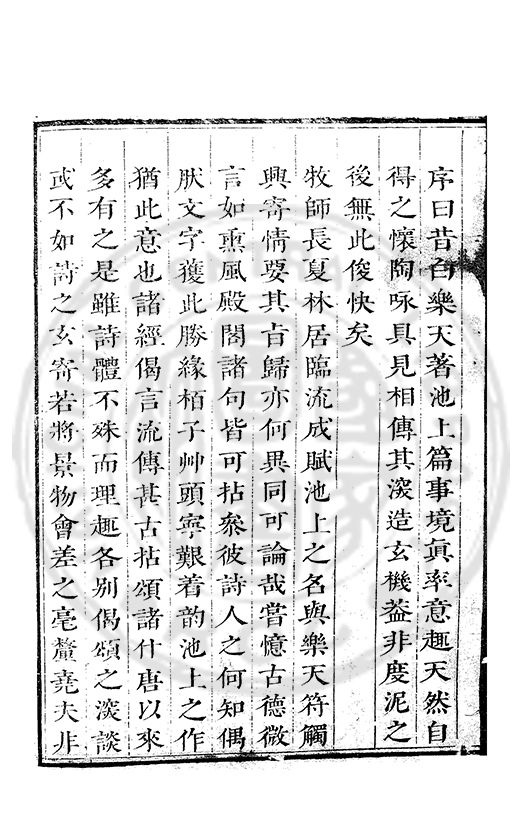 序曰昔白樂天著池上篇事境眞率意趣天然自
得之懷陶咏具見相傳其深造玄機葢非度泥之
後無此俊快矣
牧師長夏林居臨流成賦池上之名與樂天符觸
興寄情要其㫖歸亦何異同可論哉嘗憶古德微
言如熏風殿閣諸句皆可拈叅彼詩人之何知偶
肰文字獲此勝緣栢子艸頭寧艱着韵池上之作
猶此意也諸經偈言流傳甚古拈頌諸什唐以來
多有之是雖詩體不殊而理趣各別偈頌之深談
或不如詩之玄寄若將景物會差之毫釐堯夫非